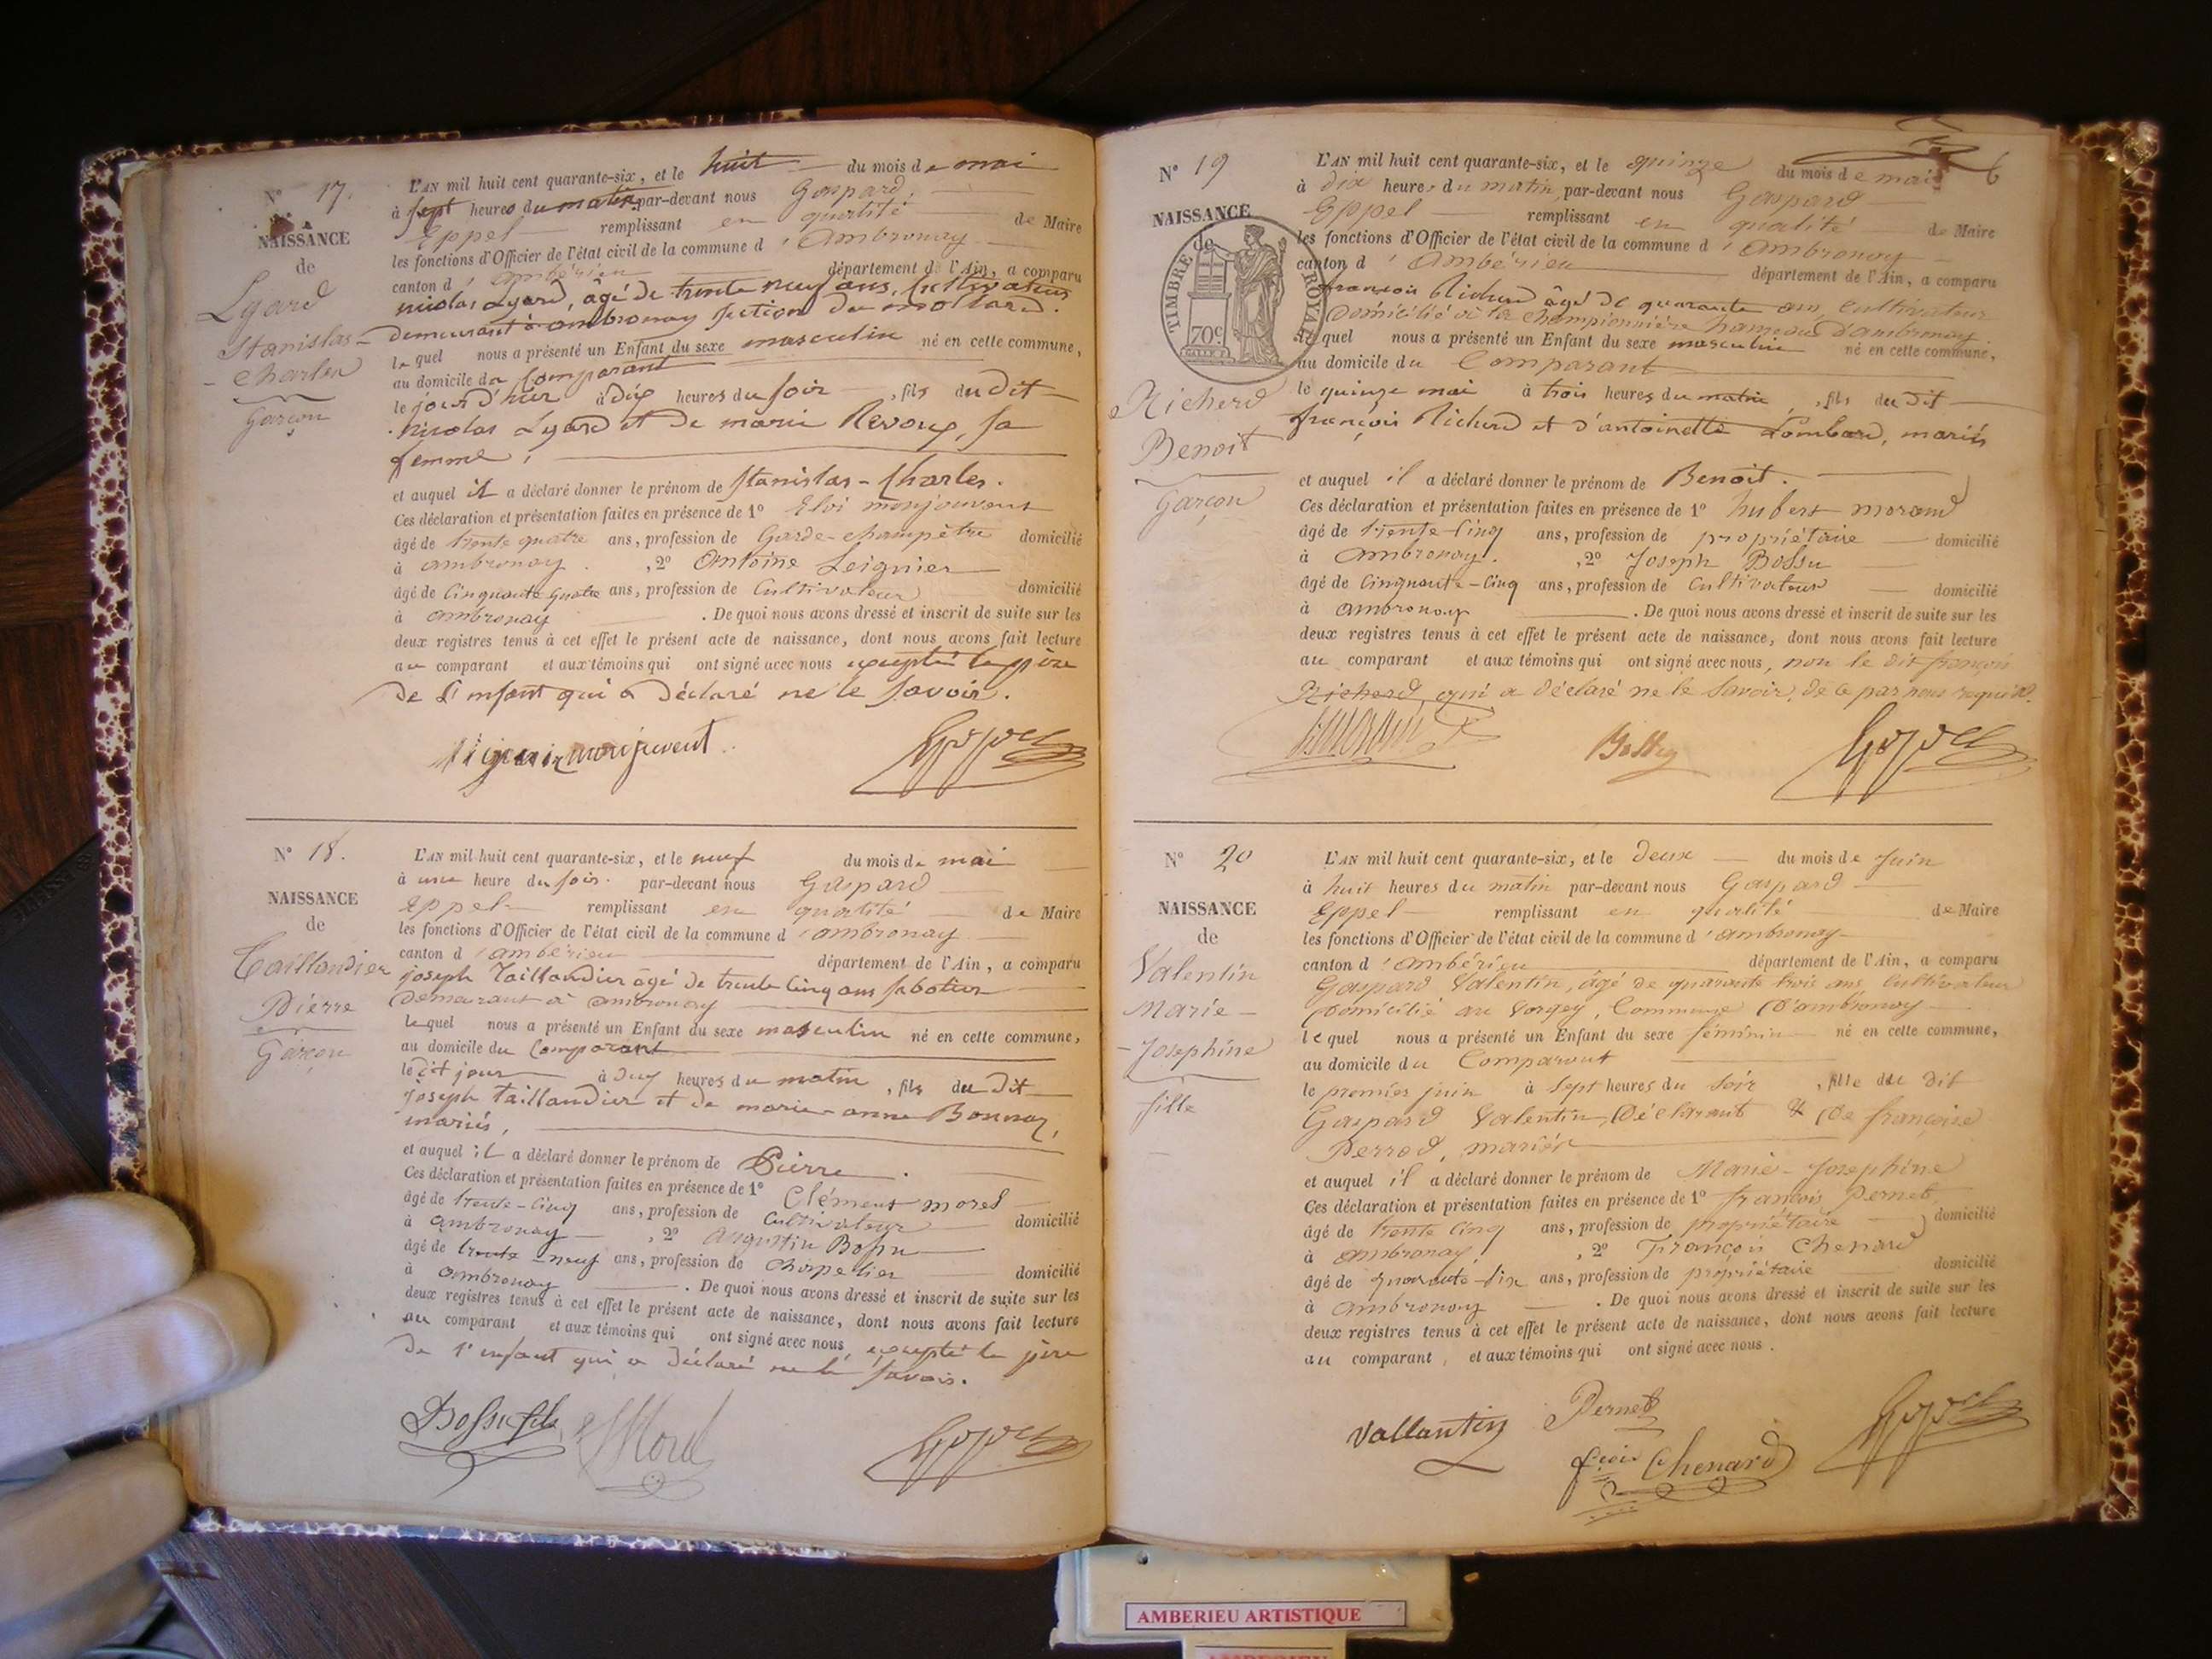 N° 17.
NAISSANCE
de
Lyard
Stanislas-
-Charles
Garçon
L'AN mil huit cent quarante-six, et le huit du mois de mai
à sept heures du matin par-devant nous Gaspard
Eppel remplissant en qualité de Maire
les fonctions d'Officier de l'état civil de la commune d'Ambronay
canton d'Ambérieu département de l'Ain, a comparu
nicolas Lyard, âgé de trente neuf ans, Cultivateur
demeurant à ambronay section du mollard.
lequel nous a présenté un Enfant du sexe masculin né en cette commune,
au domicile du Comparant
le jour d'hier à dix heures du soir, fils du dit
nicolas Lyard et de marie Revoux, sa
femme,
et auquel il a déclaré donner le prénom de Stanislas-Charles.
Ces déclaration et présentation faites en présence de 1° Eloi monjouvent
âgé de trente quatre ans, profession de Garde-champêtre domicilié
à ambronay. , 2° Antoine Leignier
âgé de Cinquante quatre ans, profession de Cultivateur domicilié
à ambronay . De quoi nous avons dressé et inscrit de suite sur les
deux registres tenus à cet effet le présent acte de naissance, dont nous avons fait lecture
au comparant et aux témoins qui ont signé avec nous excepté le père
de l'enfant qui a déclaré ne le savoir.
monjuvent
N° 18.
NAISSANCE
de
Taillandier
Pierre
Garçon
L'AN mil huit cent quarante-six, et le neuf du mois de mai
à une heure du soir. par-devant nous Gaspard
Eppel remplissant en qualité de Maire
les fonctions d'Officier de l'état civil de la commune d'ambronay
canton d'ambérieu département de l'Ain, a comparu
joseph Taillandier âgé de trente cinq ans sabotier
demeurant à ambronay
lequel nous a présenté un Enfant du sexe masculin né en cette commune,
au domicile du Comparant
le dit jour à dix heures du matin, fils du dit
joseph taillandier et de marie-anne Bonnaz,
mariés,
et auquel il a déclaré donner le prénom de Pierre.
Ces déclaration et présentation faites en présence de 1° Clément morel
âgé de trente-cinq ans, profession de Cultivateur domicilié
à ambronay , 2° augustin Bossu
âgé de trente-neuf ans, profession de Charpetier domicilié
à ambronay . De quoi nous avons dressé et inscrit de suite sur les
deux registres tenus à cet effet le présent acte de naissance, dont nous avons fait lecture
au comparant et aux témoins qui ont signé avec nous excepté le père
de l'enfant qui a déclaré ne le savoir.
Bossu fils Morel
N° 19
6
NAISSANCE
de
TIMBRE ROYAL
70c
Richerd
Benoit
Garçon
L'AN mil huit cent quarante-six, et le quinze du mois de mai
à dix heures du matin, par-devant nous Gaspard
Eppel remplissant en qualité de Maire
les fonctions d'Officier de l'état civil de la commune d'Ambronay
canton d'Ambérieu département de l'Ain, a comparu
françois Richerd âgé de quarante ans, Cultivateur
domicilié à la championnière hameau d'ambronay
lequel nous a présenté un Enfant du sexe masculin né en cette commune,
au domicile du Comparant
le quinze mai à trois heures du matin, fils du dit
françois Richerd et d'antoinette Lombard, mariés
et auquel il a déclaré donner le prénom de Benoit.
Ces déclaration et présentation faites en présence de 1° hubert morand
âgé de trente-cinq ans, profession de propriétaire domicilié
à ambronay. , 2° Joseph Bossu
âgé de Cinquante-cinq ans, profession de Cultivateur domicilié
à ambronay . De quoi nous avons dressé et inscrit de suite sur les
deux registres tenus à cet effet le présent acte de naissance, dont nous avons fait lecture
au comparant et aux témoins qui ont signé avec nous, non le dit françois
Richerd qui a déclaré ne le savoir, de ce par nous requis.
Bossu
N° 20
NAISSANCE
de
Valentin
Marie-
-Josephine
fille
L'AN mil huit cent quarante-six, et le deux du mois de juin
à huit heures du matin par-devant nous Gaspard
Eppel remplissant en qualité de Maire
les fonctions d'Officier de l'état civil de la commune d'ambronay
canton d'ambérieu département de l'Ain, a comparu
Gaspard Valentin, âgé de quarante trois ans, Cultivateur
domicilié au Vorgey, Commune d'ambronay
lequel nous a présenté un Enfant du sexe féminin né en cette commune,
au domicile du Comparant
le premier juin à sept heures du soir, fille du dit
Gaspard Valentin, Déclarant & de françoise
Perrod, mariés
et auquel il a déclaré donner le prénom de Marie-Josephine
Ces déclaration et présentation faites en présence de 1° françois Pernet
âgé de trente cinq ans, profession de propriétaire domicilié
à ambronay , 2° François Chenard
âgé de quarante-six ans, profession de propriétaire domicilié
à ambronay . De quoi nous avons dressé et inscrit de suite sur les
deux registres tenus à cet effet le présent acte de naissance, dont nous avons fait lecture
au comparant, et aux témoins qui ont signé avec nous.
Vallantin Pernet
fçois Chenard
AMBERIEU ARTISTIQUE